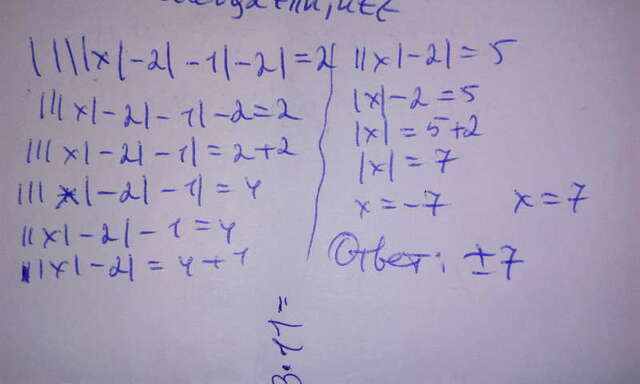 ||||x|-2|-1|-2|=2
|||x|-2|-1|-2=2
|||x|-2|-1|=2+2
|||x|-2|-1|=4
||x|-2|-1=4
||x|-2|=4+1
||x|-2|=5
|x|-2=5
|x|=5+2
|x|=7
x=-7 x=7
Ответ: ±7
3·11=